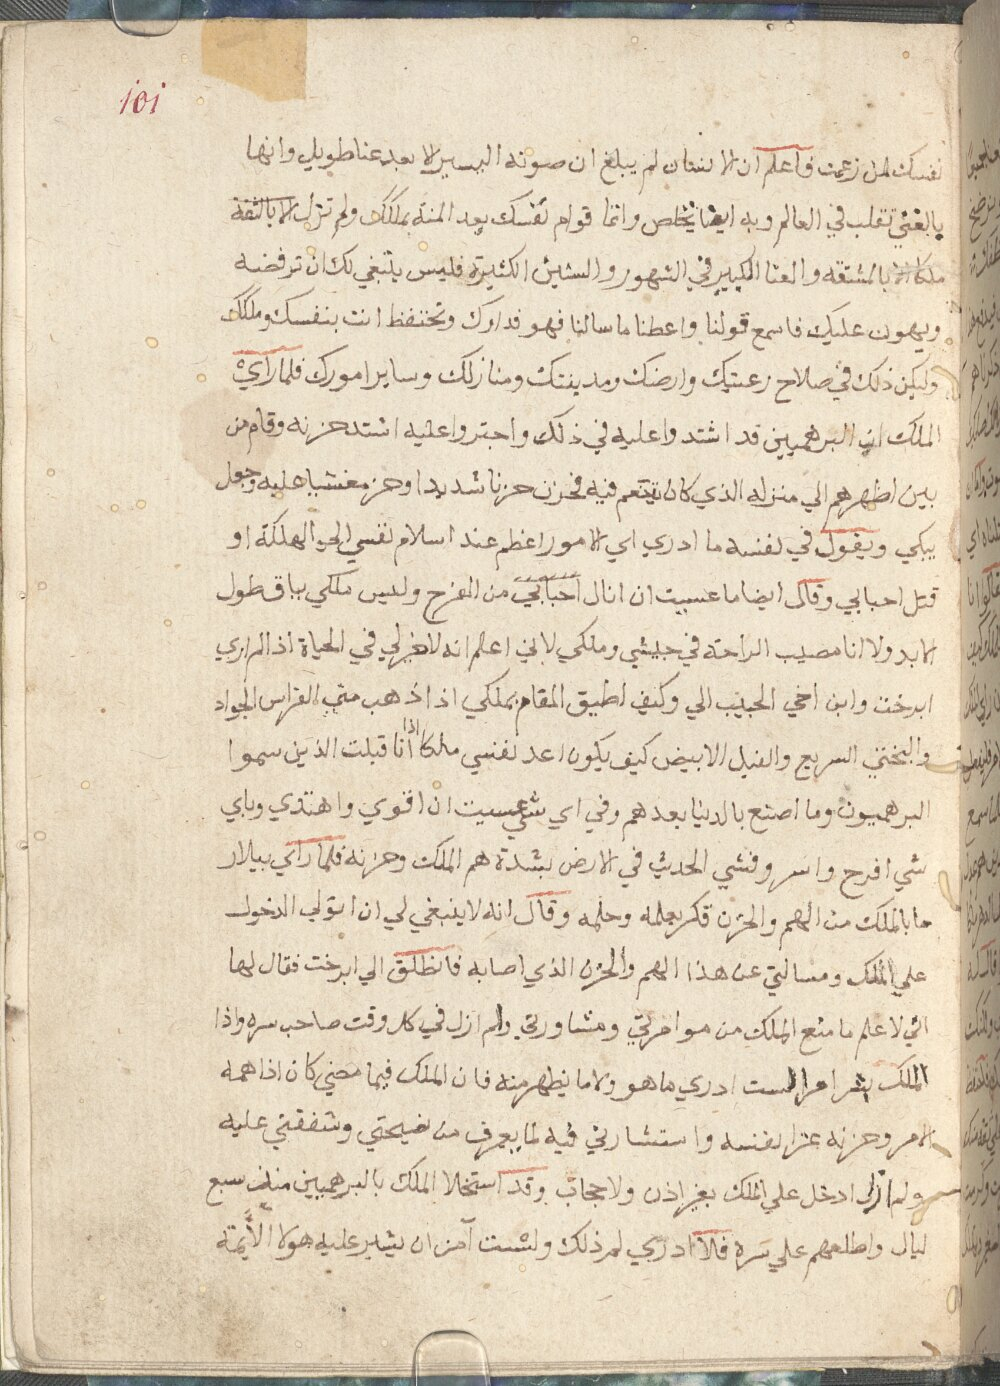 101
نفسك لمن زعمت فاعلم ان الانسان لم يبلغ ان صوته اليسير الا بعد عنا طويل وانها
بالغني تقلب في العالم وبه ايضا تخلص وانما قوام نفسك بعد المنة بملكك ولم تنل الا بالثقة
ملكا الا بالمشقه والعنا الكبير في الشهور والسنين الكثيرة فليس ينبغي لك ان ترفضه
ويهون عليك فاسمع قولنا واعطنا ما سالنا فهو فداوك وتحتفظ انت بنفسك وملكك
وليكن ذلك في صلاح رعيتك وارضك ومدينتك ومنازلك وساير امورك فلما راي
الملك ان البرهميين قد اشتدوا عليه في ذلك واجتروا عليه اشتد حزنه وقام من
بين اظهرهم الي منزله الذي كان يتنعم فيه فحزن حزنا شديدا وخر مغشيا عليه وجعل
يبكي ويقول في نفسه ما ادري اي الامور اعظم عند اسلام نفسي الي الهلكة او
قتل احبابي وقال ايضا ما عسيت ان انال احبابي من الفرح وليس ملكي بباق طول
الابد ولا انا مصيب الراحة في جيشي وملكي لاني اعلم انه لا خير لي في الحياة اذا لم اري
ابرخت وابن اخي الحبيب الي وكيف اطيق المقام بملكي اذا ذهب مني الفراس الجواد
والبختي السريع والفيل الابيض كيف يكون اعد نفسي ملكا اذا انا قبلت الذين سموا
البرهميون وما اصنع بالدنيا بعدهم وفي اي شي عسيت ان اقوي واهتدي وباي
شي افرح واسر وفشي الحديث في الارض بشدة هم الملك وحزنه فلما راي بيلار
ما بالملك من الهم والحزن فكر بعلمه وحلمه وقال انه لا ينبغي لي ان اتولي الدخول
علي الملك ومسالتي عن هذا الهم والحزن الذي اصابه فانطلق الي ابرخت فقال لها
اني لا علم ما منع الملك من موامرتي ومشاورتي ولم ازل في كل وقت صاحب سره واذا
الملك بشر امرا لست ادري ما هو ولا ما يظهر منه فان الملك فيما مضي كان اذا همه
الامر وحزنه عزا نفسه واستشارني فيه لما يعرف من نصيحتي وشفقتي عليه
ولم ازل ادخل علي الملك بغير اذن ولا حجاب وقد استخلا الملك بالبرهميين منذ سبع
ليال واطلعهم علي سره فلا ادري لم ذلك ولست آمن ان يشير عليه هولا الأيمة